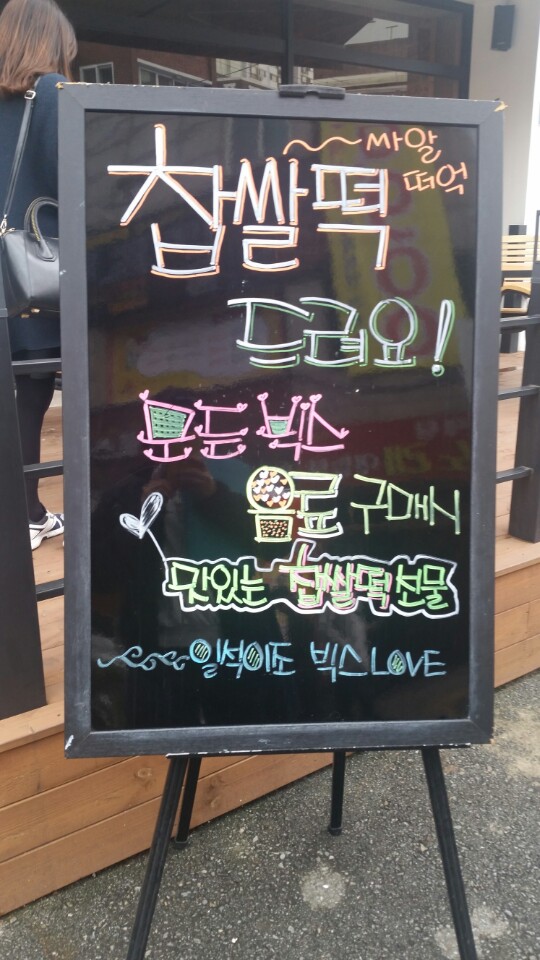 찹쌀떡 싸알
떠억
드려요!
모든 빅스
음료 구매시
맛있는 찹쌀떡 선물
일석이조 빅스 LOVE